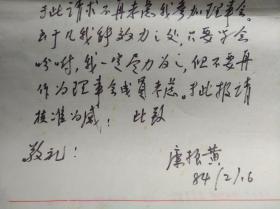 于此请求不再考虑我参加理事会。
至于凡我能效力之处，只要学会
吩咐，我一定尽力为之，但不要再
作为理事会成员考虑。于此报请
核准为感！ 此致
敬礼！
廖振黄
84/2/.6